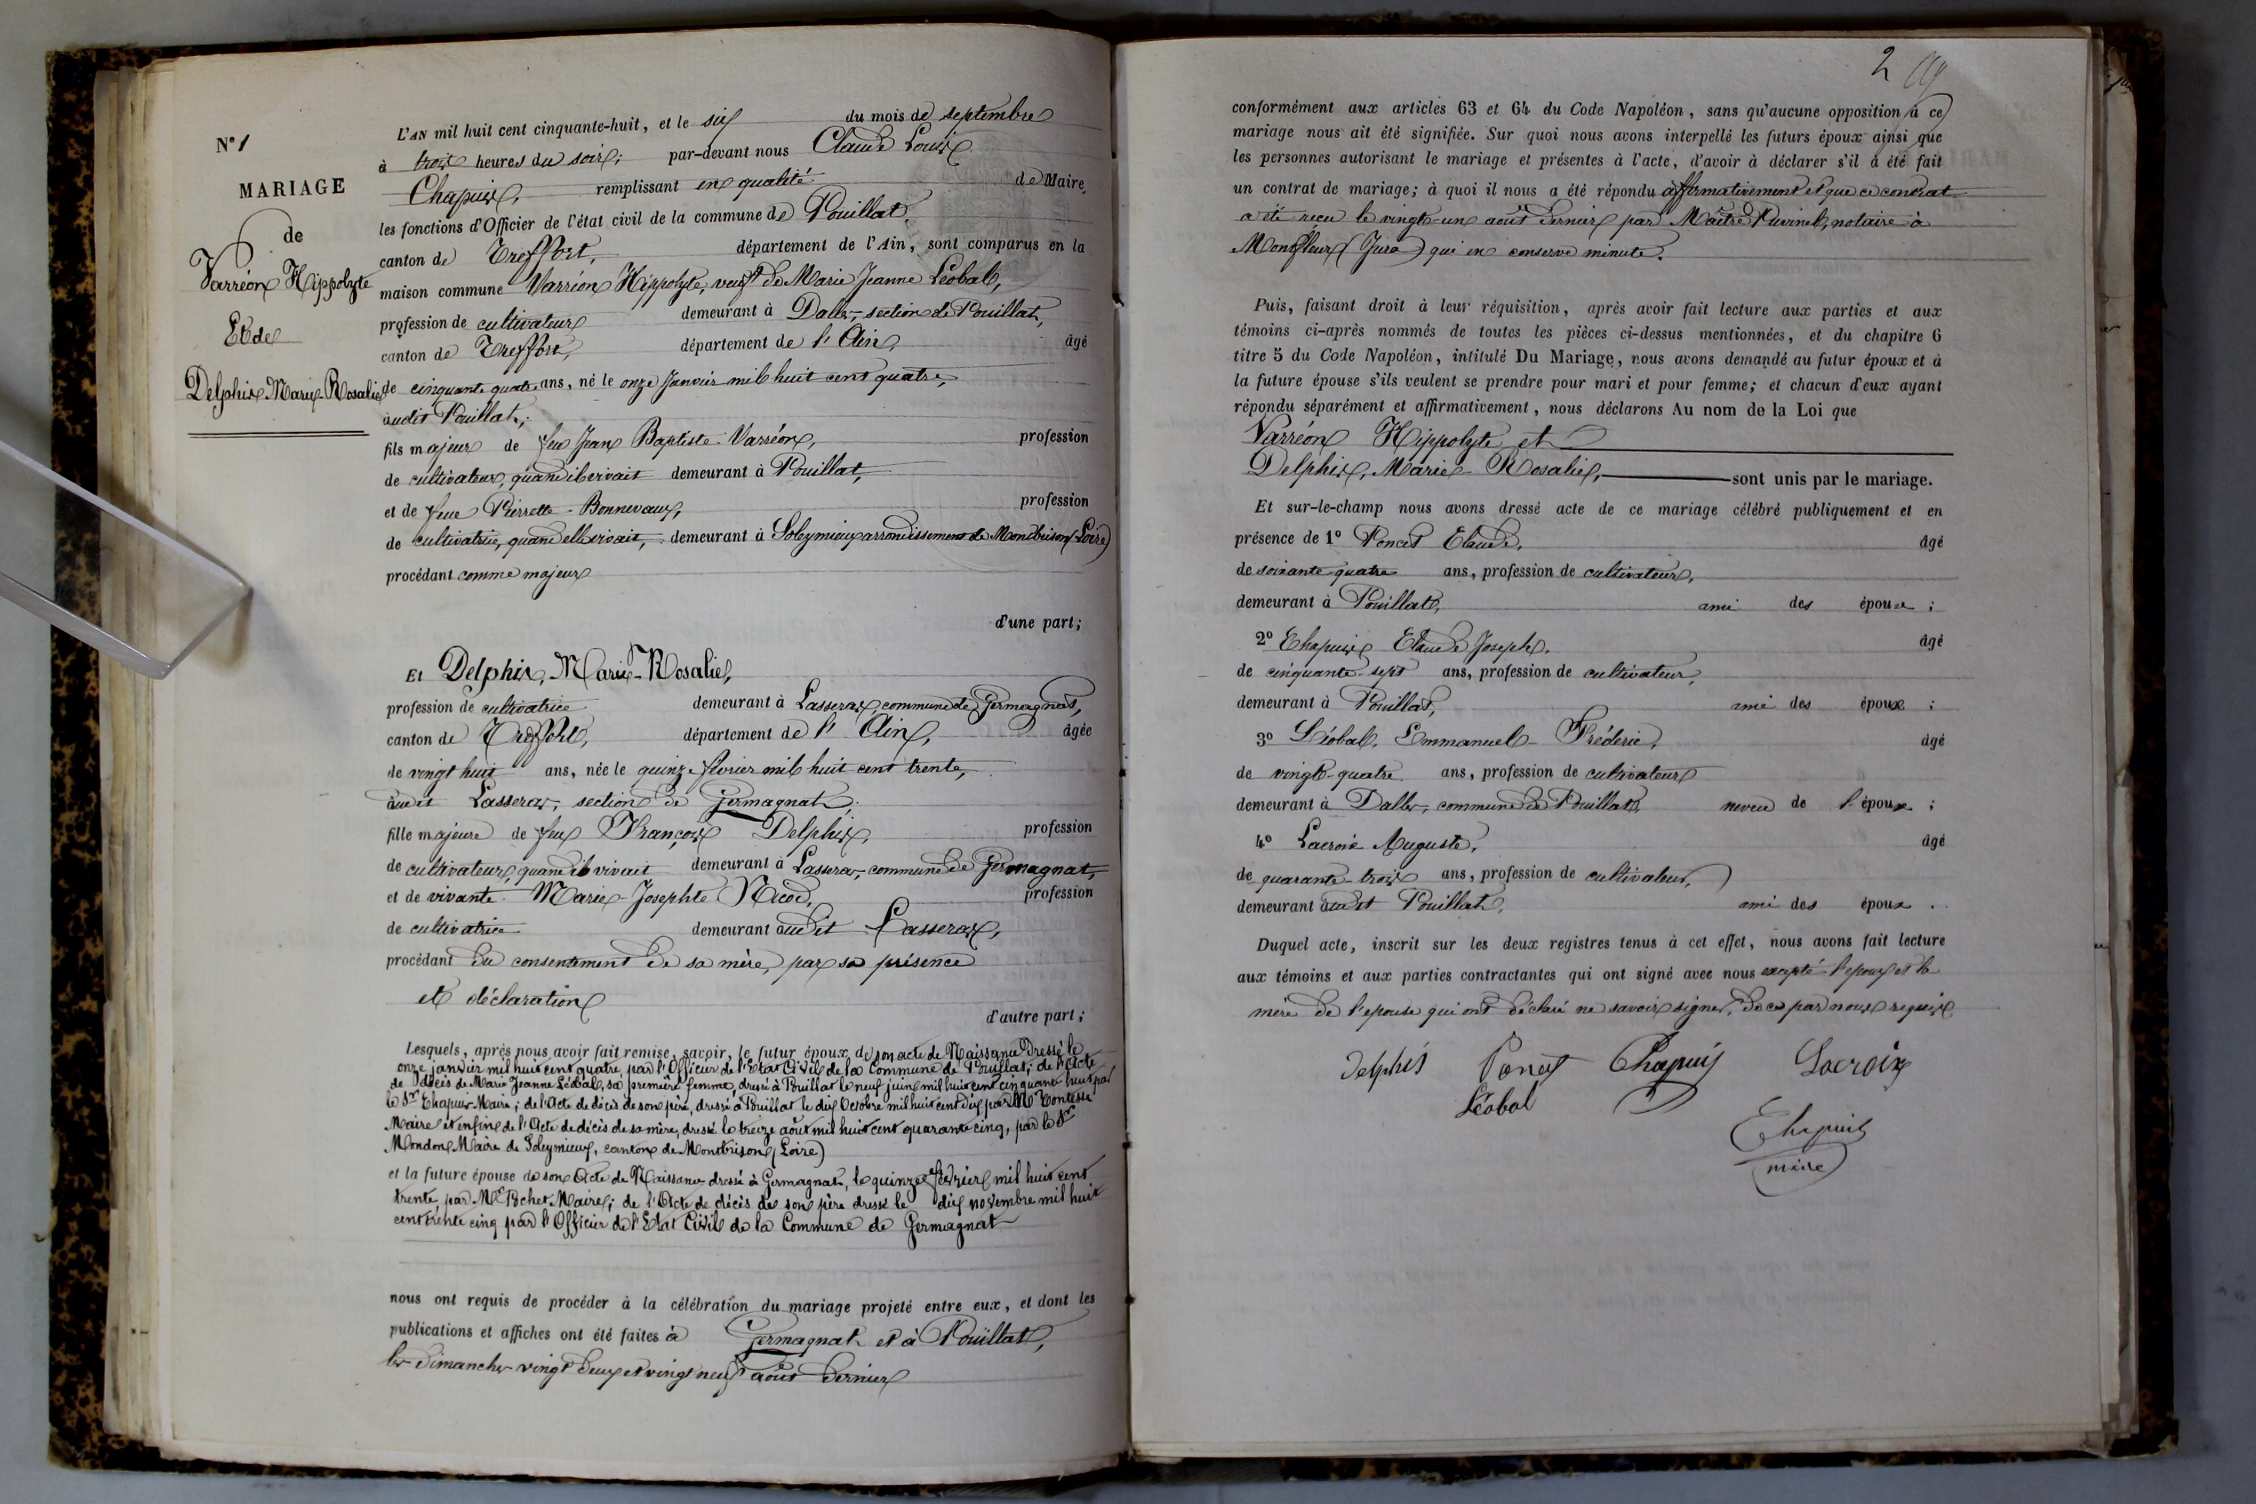 N° 1
MARIAGE
de
Varréon Hippolyte
Et de
Delphis Marie-Rosalie
L'AN mil huit cent cinquante-huit, et le six du mois de septembre
à trois heures du soir; par-devant nous Claude Louis
Chapuis, remplissant en qualité de Maire,
les fonctions d'Officier de l'état civil de la commune de Pouillat,
canton de Treffort, département de l'Ain, sont comparus en la
maison commune Varréon Hippolyte, veuf de Marie Jeanne Léobal,
profession de cultivateur demeurant à Dalle, section de Pouillat,
canton de Treffort, département de l'Ain, âgé
de cinquante quatre ans, né le onze Janvier mil huit cent quatre,
audit Pouillat;
fils majeur de feu Jean Baptiste Varréon, profession
de cultivateur, quand il vivait demeurant à Pouillat,
et de feue Pierrette Bonnevaux, profession
de cultivatrice, quand elle vivait, demeurant à Soleymieux arrondissement de Montbrison (Loire)
procédant comme majeur
d'une part;
Et Delphis, Marie-Rosalie,
profession de cultivatrice demeurant à Lasseras, commune de Germagnat,
canton de Treffort, département de l'Ain, âgée
de vingt huit ans, née le quinze février mil huit cent trente,
audit Lasseras, section de Germagnat;
fille majeure de feu François Delphis, profession
de cultivateur, quand il vivait demeurant à Lasseras, commune de Germagnat,
et de vivante Marie-Josephte Nicod, profession
de cultivatrice demeurant audit Lasseras,
procédant du consentement de sa mère, par sa présence
et déclaration
d'autre part;
Lesquels, après nous avoir fait remise, savoir, le futur époux de son acte de Naissance dressé le
onze janvier mil huit cent quatre par l'Officier de l'Etat Civil de la Commune de Pouillat; de l'Acte
de décès de Marie Jeanne Léobal, sa première femme, dressé à Pouillat le neuf juin mil huit cent cinquante huit par
le Sr Chapuis Maire; de l'Acte de décès de son père, dressé à Pouillat le dix Octobre mil huit cent dix par Mr
Maire et enfin de l'Acte de décès de sa mère, dressé le treize août mil huit cent quarante cinq, par le Sr
Mondon Maire de Soleymieux, canton de Montbrison (Loire)
et la future épouse de son Acte de Naissance dressé à Germagnat, le quinze février mil huit cent
trente par Mr Pochet Maire; de l'Acte de décès de son père dressé le dix novembre mil huit
cent trente cinq par l'Officier de l'Etat Civil de la Commune de Germagnat
nous ont requis de procéder à la célébration du mariage projeté entre eux, et dont les
publications et affiches ont été faites à Germagnat et à Pouillat,
les dimanches vingt deux et vingt neuf août dernier
2
conformément aux articles 63 et 64 du Code Napoléon, sans qu'aucune opposition à ce
mariage nous ait été signifiée. Sur quoi nous avons interpellé les futurs époux ainsi que
les personnes autorisant le mariage et présentes à l'acte, d'avoir à déclarer s'il a été fait
un contrat de mariage; à quoi il nous a été répondu affirmativement et que ce contrat
a été reçu le vingt-un août dernier par Maître notaire à
Montfleur (Jura) qui en conserve minute.
Puis, faisant droit à leur réquisition, après avoir fait lecture aux parties et aux
témoins ci-après nommés de toutes les pièces ci-dessus mentionnées, et du chapitre 6
titre 5 du Code Napoléon, intitulé Du Mariage, nous avons demandé au futur époux et à
la future épouse s'ils veulent se prendre pour mari et pour femme; et chacun d'eux ayant
répondu séparément et affirmativement, nous déclarons Au nom de la Loi que
Varréon Hippolyte et
Delphis, Marie-Rosalie, sont unis par le mariage.
Et sur-le-champ nous avons dressé acte de ce mariage célébré publiquement et en
présence de 1° Poncet Claude, âgé
de soixante quatre ans, profession de cultivateur,
demeurant à Pouillat, ami des époux;
2° Chapuis Claude Joseph, âgé
de cinquante sept ans, profession de cultivateur,
demeurant à Pouillat, ami des époux;
3° Léobal, Emmanuel-Fréderic, âgé
de vingt-quatre ans, profession de cultivateur
demeurant à Dalle, commune de Pouillat, neveu de l'époux;
4° Lacroix Auguste, âgé
de quarante-trois ans, profession de cultivateur,
demeurant audit Pouillat, ami des époux.
Duquel acte, inscrit sur les deux registres tenus à cet effet, nous avons fait lecture
aux témoins et aux parties contractantes qui ont signé avec nous excepté l'époux et la
mère de l'épouse qui ont déclaré ne savoir signer, de ce par nous requis
Delphis Poncet Chapuis Lacroix
Léobal
Chapuis
maire